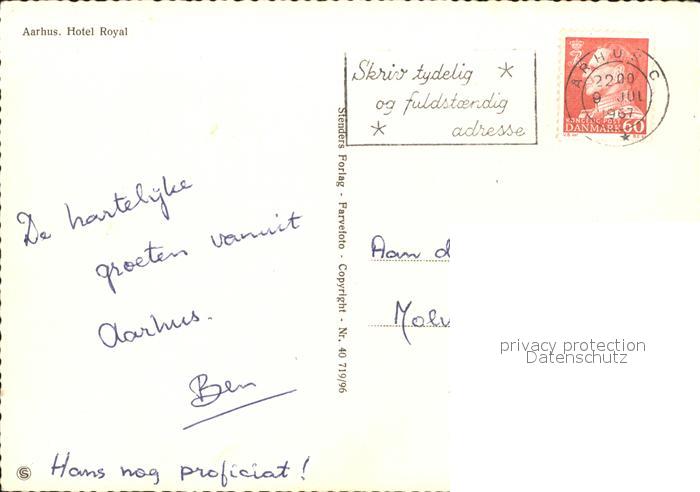 Aarhus. Hotel Royal
Skriv tydelig
og fuldstændig
adresse
AARHUS C
2200
9 JUL
1967
KONGELIG POST
DANMARK 60
De hartelijke
groeten vanuit
Aarhus.
Ben
Hans nog proficiat!
Stenders Forlag - Farvefoto - Copyright - Nr. 40 719/96
Aan d
Molv
privacy protection
Datenschutz